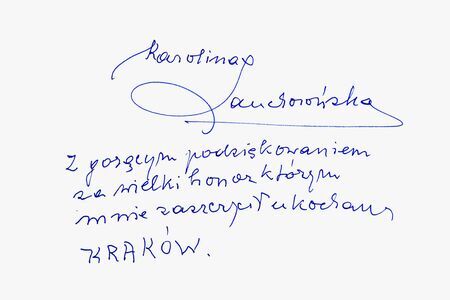 Karolina
Lanckorońska
Z gorącym podziękowaniem
za wielki honor którym
mnie zaszczycił ukochany
KRAKÓW.